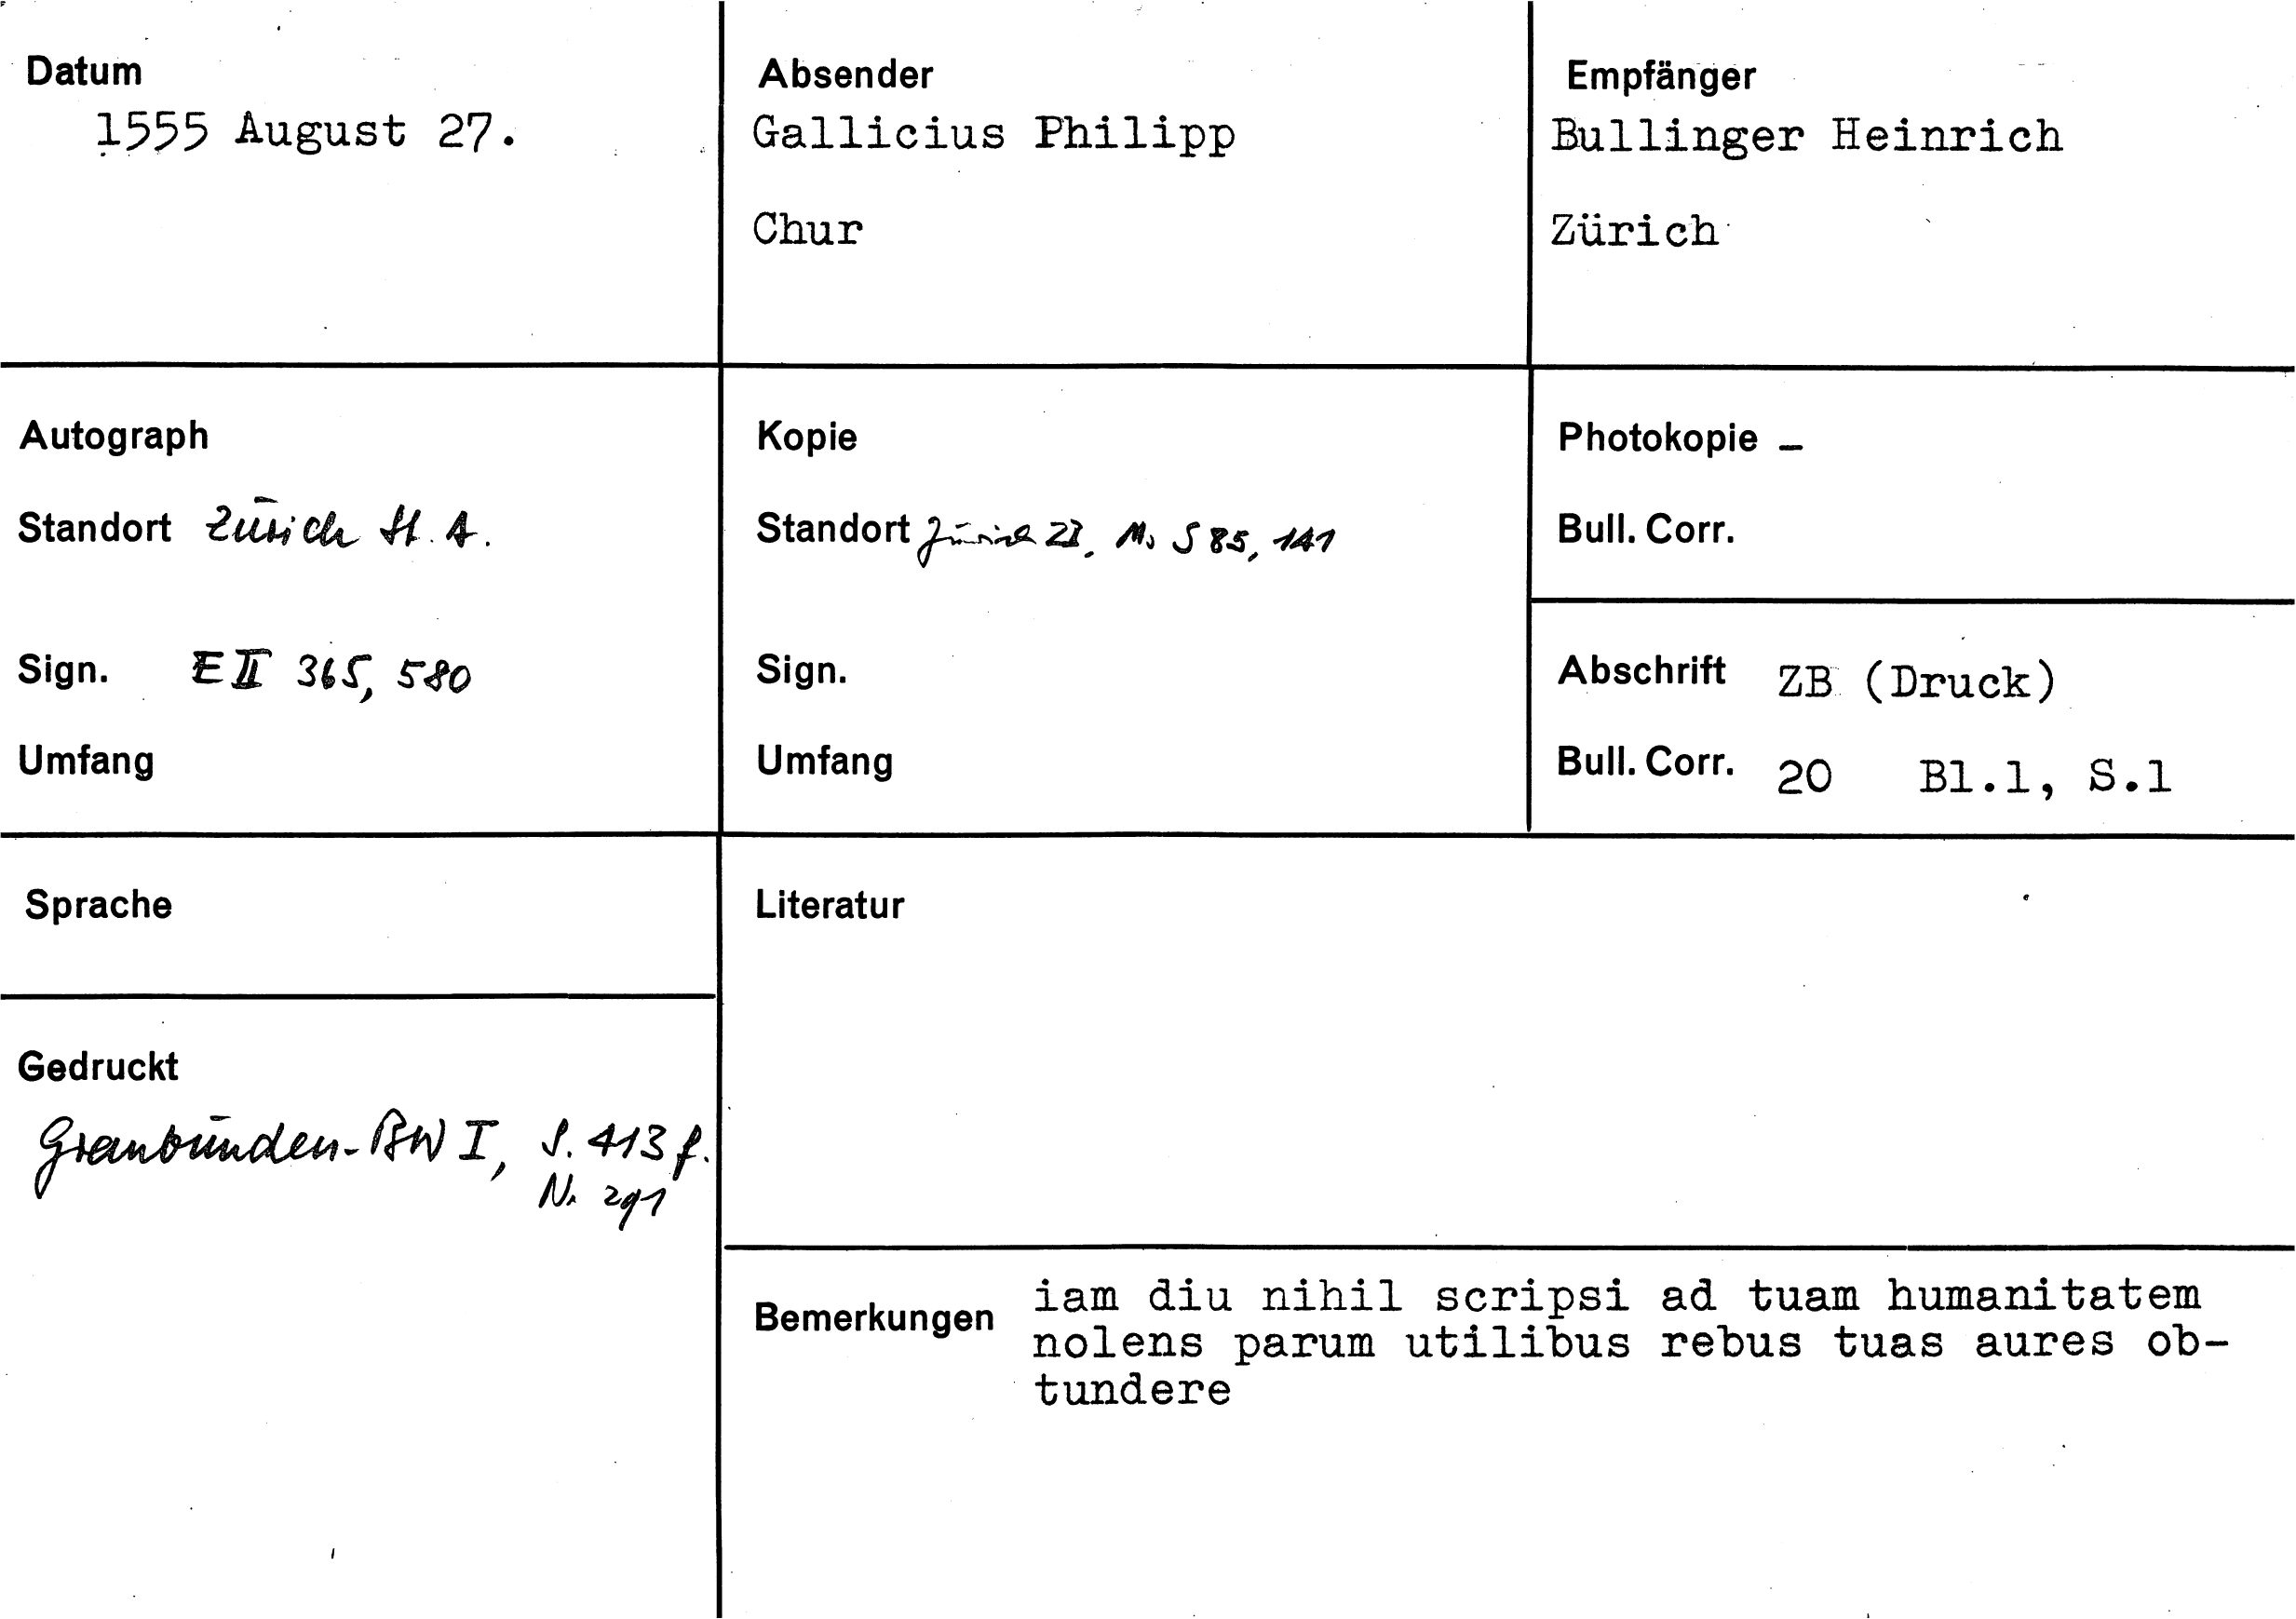 Datum
1555 August 27.
Absender
Gallicius Philipp
Chur
Empfänger
Bullinger Heinrich
Zürich
Autograph
Standort Zürich St. A.
Sign. E II 365, 580
Umfang
Kopie
Standort Zürich ZB, Ms S 85, 141
Sign.
Umfang
Photokopie –
Bull. Corr.
Abschrift ZB (Druck)
Bull. Corr. 20 Bl.1, S.1
Sprache
Gedruckt
Graubünden-BW I, S. 413 f.
Nr 291
Literatur
Bemerkungen iam diu nihil scripsi ad tuam humanitatem
nolens parum utilibus rebus tuas aures ob-
tundere